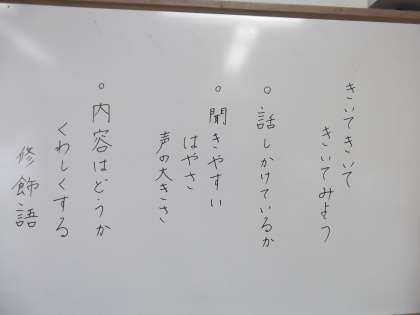 きいてきいて
きいてみよう
○話しかけているか
○聞きやすい
はやさ
声の大きさ
○内容はどうか
くわしくする
修飾語